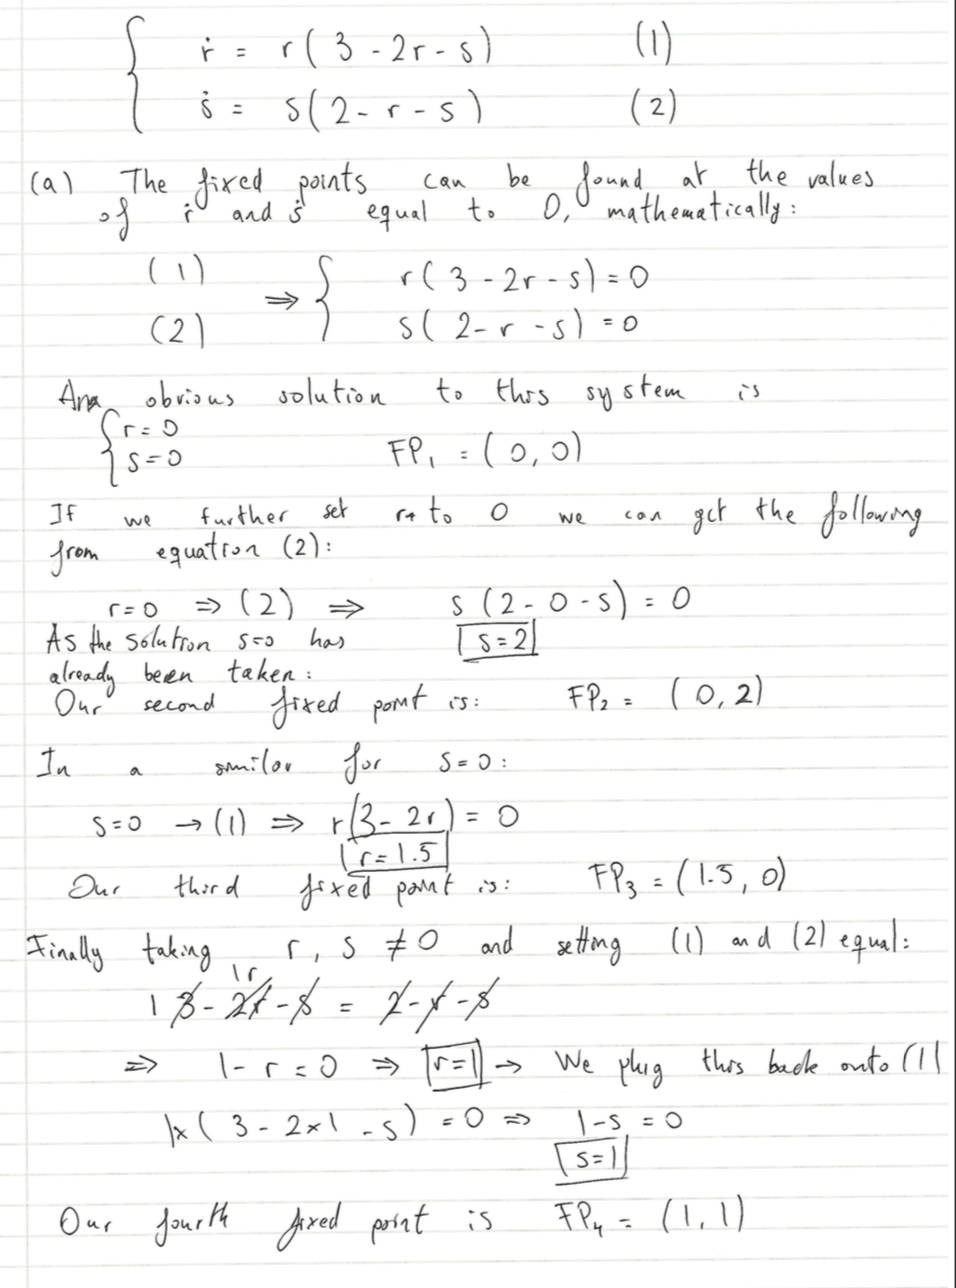 ṙ = r( 3 - 2r - s) (1)
ṡ = s( 2 - r - s ) (2)
(a) The fixed points can be found at the values
of ṙ and ṡ equal to 0, mathematically:
(1) ⇒ r( 3 - 2r - s) = 0
(2) s( 2 - r - s) = 0
An obvious solution to this system is
r = 0
s = 0 FP₁ = ( 0, 0)
If we further set r to 0 we can get the following
from equation (2):
r=0 ⇒ (2) ⇒ s (2 - 0 - s) = 0
As the solution s=0 has s = 2
already been taken:
Our second fixed point is: FP₂ = ( 0, 2)
In a similar for s = 0:
s=0 → (1) ⇒ r(3 - 2r) = 0
r = 1.5
Our third fixed point is: FP₃ = ( 1.5, 0)
Finally taking r, s ≠ 0 and setting (1) and (2) equal:
1r
1 3 - 2r - s = 2 - r - s
⇒ 1 - r = 0 ⇒ r=1 → We plug this back onto (1)
1x( 3 - 2x1 - s) = 0 ⇒ 1-s = 0
s=1
Our fourth fixed point is FP₄ = (1, 1)